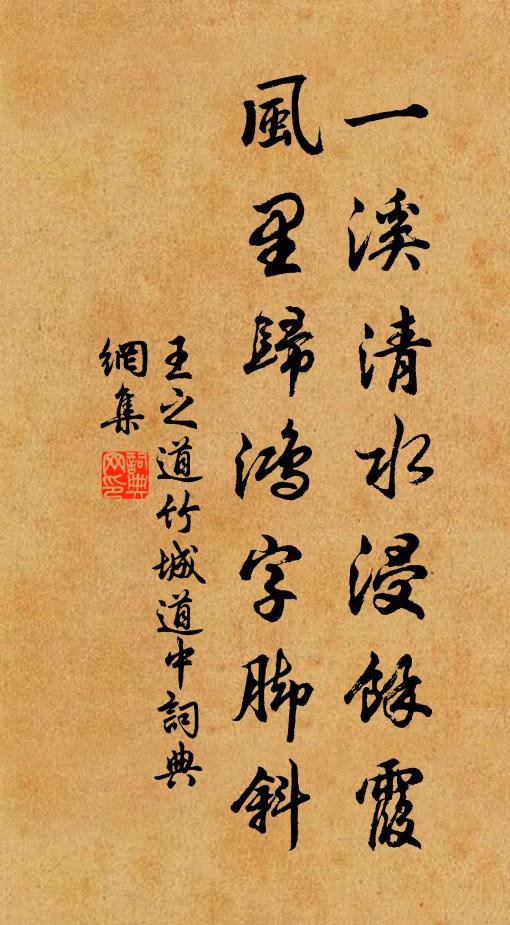 一溪清水浸餘霞
風里歸鴻字脚斜
王之道竹城道中詞典
網集
詞典網印